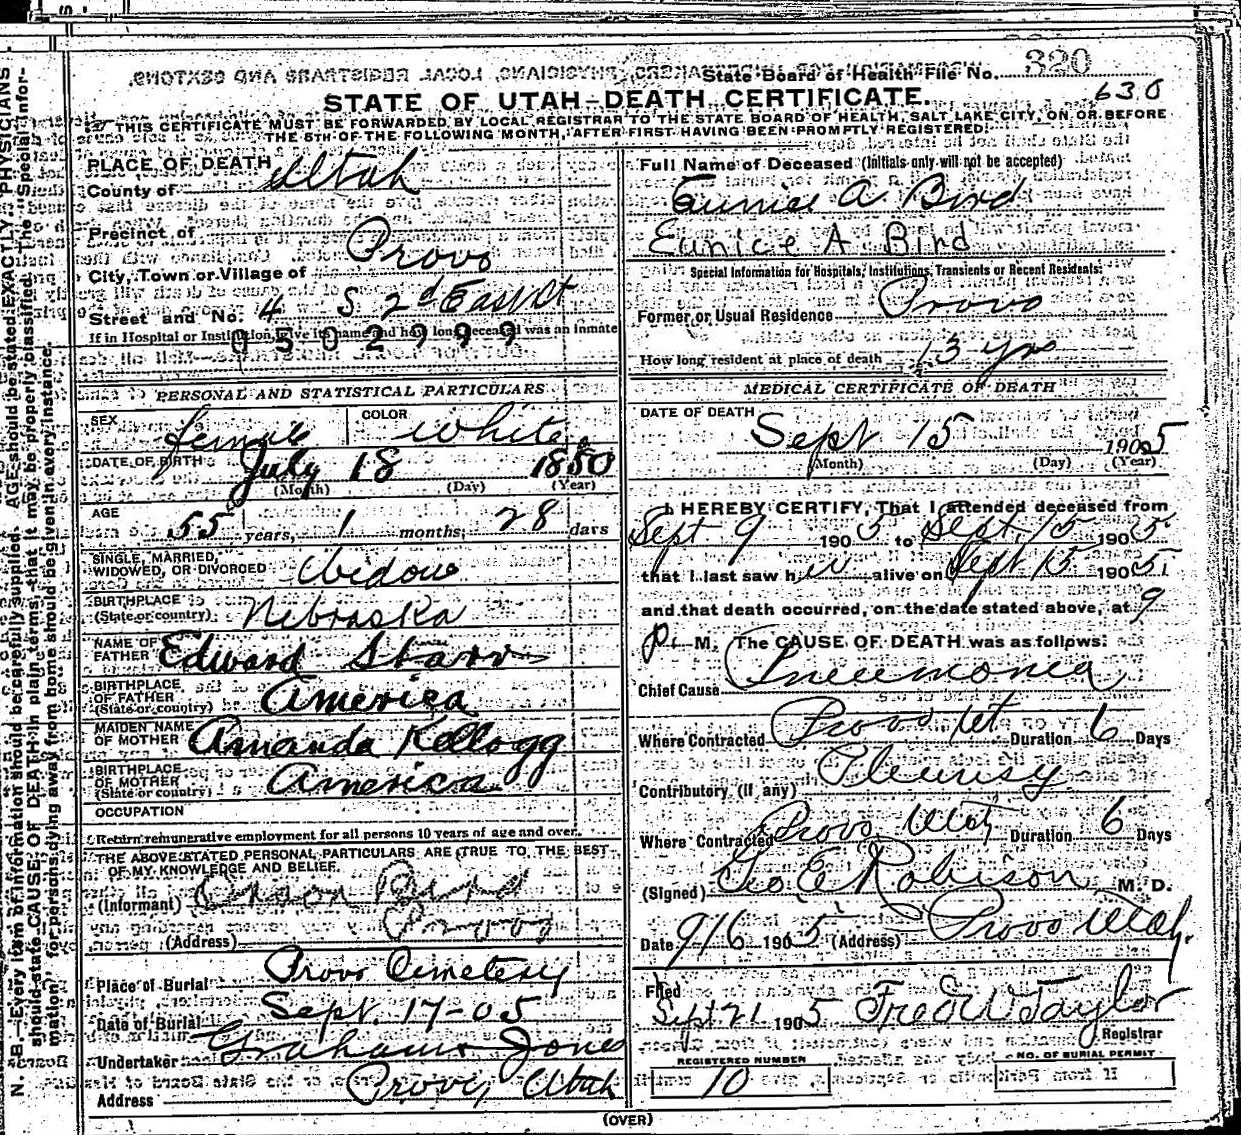 State Board of Health File No. 320
STATE OF UTAH—DEATH CERTIFICATE.
636
THIS CERTIFICATE MUST BE FORWARDED BY LOCAL REGISTRAR TO THE STATE BOARD OF HEALTH, SALT LAKE CITY, ON OR BEFORE
THE 5TH OF THE FOLLOWING MONTH, AFTER FIRST HAVING BEEN PROMPTLY REGISTERED.
PLACE OF DEATH
County of Utah
Precinct of
City, Town or Village of Provo
Street and No. 4 S 2d East St
If in Hospital or Institution, give its name and how long deceased was an inmate
0502999
PERSONAL AND STATISTICAL PARTICULARS
SEX female COLOR White
DATE OF BIRTH July 18 1850
(Month) (Day) (Year)
AGE 55 years, 1 months, 28 days
SINGLE, MARRIED,
WIDOWED, OR DIVORCED Widow
BIRTHPLACE
(State or country) Nebraska
NAME OF
FATHER Edward Starr
BIRTHPLACE
OF FATHER
(State or country) America
MAIDEN NAME
OF MOTHER Amanda Kellogg
BIRTHPLACE
OF MOTHER
(State or country) America
OCCUPATION
Return remunerative employment for all persons 10 years of age and over.
THE ABOVE STATED PERSONAL PARTICULARS ARE TRUE TO THE BEST
OF MY KNOWLEDGE AND BELIEF.
(Informant) Bird
(Address) Provo
Place of Burial Provo Cemetery
Date of Burial Sept. 17-05
Undertaker Graham Jones
Address Provo, Utah
Full Name of Deceased (Initials only will not be accepted)
Eunice A. Bird
Eunice A Bird
Special Information for Hospitals, Institutions, Transients or Recent Residents:
Former or Usual Residence Provo
How long resident at place of death 13 yrs
MEDICAL CERTIFICATE OF DEATH
DATE OF DEATH
Sept 15 1905
(Month) (Day) (Year)
I HEREBY CERTIFY, That I attended deceased from
Sept 9 1905 to Sept. 15 1905
that I last saw her alive on Sept 15 1905
and that death occurred, on the date stated above, at 9
P. M. The CAUSE OF DEATH was as follows:
Chief Cause Pneumonia
Where Contracted Provo Ut Duration 6 Days
Contributory (if any) Pleurisy
Where Contracted Provo Utah Duration 6 Days
(Signed) Geo E Robison M. D.
Date 9/16 1905 (Address) Provo Utah.
Filed
Sept 21 1905 Fred W Taylor
Registrar
REGISTERED NUMBER
10
NO. OF BURIAL PERMIT
(OVER)
N. B.—Every item of information should be carefully supplied. AGE should be stated EXACTLY. PHYSICIANS
should state CAUSE OF DEATH in plain terms, that it may be properly classified. The "Special Infor-
mation" for persons dying away from home should be given in every instance.